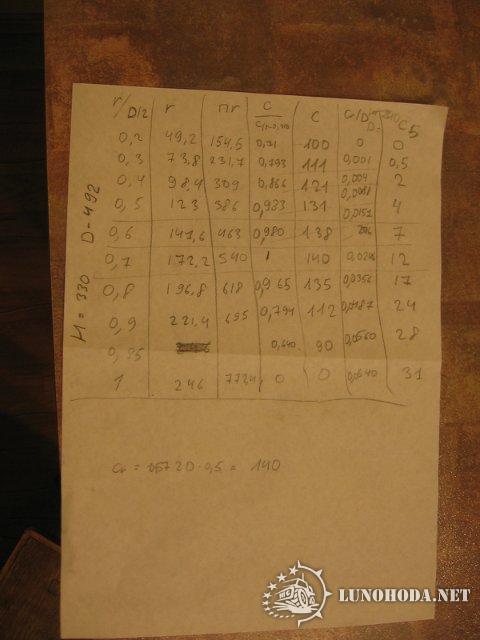 r/D/2 r πr C/C(r=0,7R) C
0,2 49,2 154,5 0,71 100 0 0
0,3 73,8 231,7 0,793 111 0,001 0,5
0,4 98,4 309 0,866 121 0,004 2
0,5 123 386 0,983 131 4
0,6 147,6 463 0,980 138 7
0,7 172,2 540 1 140 12
0,8 196,8 618 0,965 135 0,0356 17
0,9 221,4 695 0,794 112 0,0487 24
0,95 0,640 90 0,0560 28
1 246 0 0 0,0640 31
H = 330 D = 492
140
LUNOHODA.NET